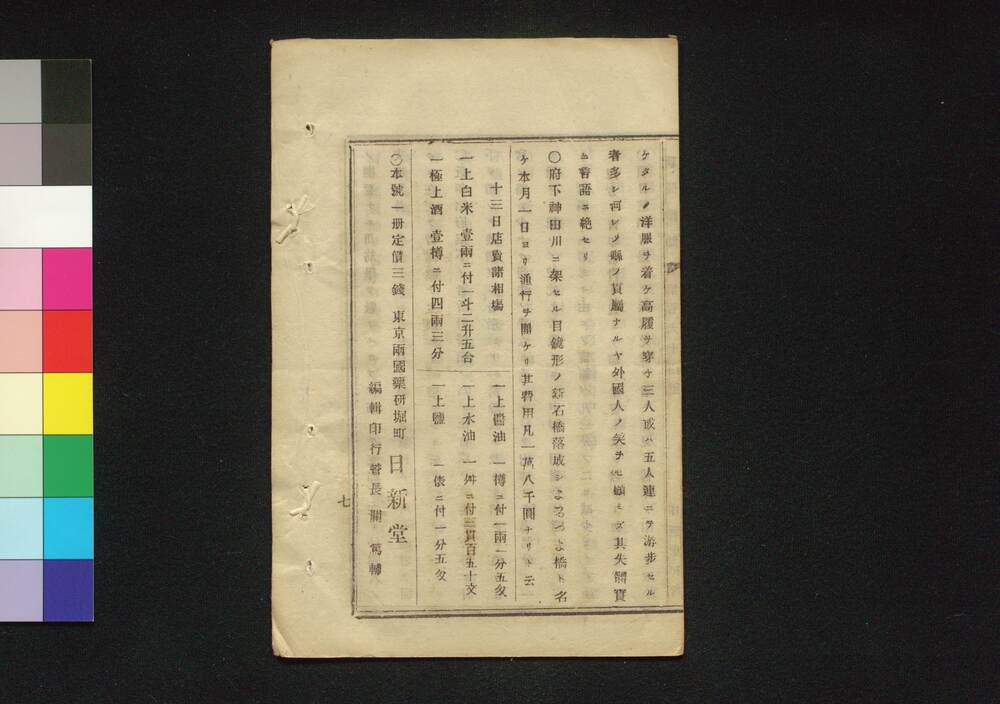 ケタルノ洋服ヲ着ケ高履ヲ穿チ三人或ハ五人連ニテ游步セル
者多シ何レノ縣ノ貫屬ナルヤ外國人ノ笑ヲモ顧ミズ其失體實
ニ言語ニ絶セリ
〇府下神田川ニ架セル目鏡形ノ新石橋落成シよろづよ橋ト名
ケ本月一日ヨリ通行ヲ開ケリ其費用凡一萬八千圓ナリト云
十三日店賣諸相塲
一上醬油 一樽ニ付一兩一分五匁
一上白米 壹兩ニ付一斗二升五合
一上水油 一舛ニ付三貫百五十文
一極上酒 壹樽ニ付四兩三分
一上鹽 一俵ニ付一分五匁
〇本號一册定價三錢 東京兩國藥研堀町 日新堂
編輯印行督長 關 篤輔
七